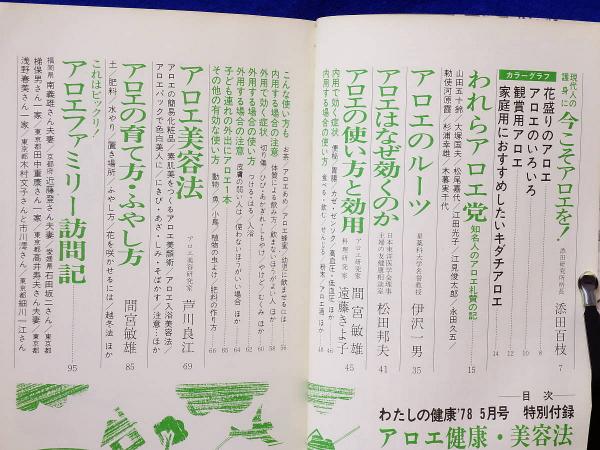 目次
わたしの健康'78 5月号 特別付録
アロエ健康・美容法
現代人の護身に
今こそアロエを!
添田百枝
7
カラーグラフ
花盛りのアロエ
8
アロエのいろいろ
10
観賞用アロエ
12
家庭用におすすめしたいキダチアロエ
14
われらアロエ党
知名人のアロエ礼賛の記
15
山田五十鈴/大堀国夫/松尾嘉代/江田光子/江見俊太郎/永田久五/
勅使河原霞/杉浦幸雄/木暮実千代
アロエのルーツ
星薬科大学名誉教授
伊沢一男
35
アロエはなぜ効くのか
日本東洋医学会理事
主婦の友健康相談室
松田邦夫
41
アロエの使い方と効用
アロエ研究家
間宮敏雄
料理研究家
遠藤きよ子
45
内用で効く症状
便秘/胃腸/カゼ/ゼンソク/高血圧・低血圧 ほか
46
内用する場合の使い方
48
こんな使い方も
お茶/アロエあめ/アロエ蜂蜜/幼児に飲ませるには
56
内用する場合の注意
体質による飲み方/飲まないほうがよい人 ほか
58
外用で効く症状
切り傷/ひび・あかぎれ・しもやけ/やけど/むくみ ほか
外用する場合の使い方
つける・はる/入浴
外用する場合の注意
皮膚の弱い人は/使わないほうがいい場合 ほか
子ども連れの外出にアロエ1本
その他の有効な使い方
動物/魚/小鳥/植物の虫よけ/肥料の作り方
66
アロエ美容法
アロエ美容研究家
芦川良江
69
アロエの簡易化粧品/素肌美をつくるアロエ美顔術/アロエ入浴美容法/
アロエパックで色白美人に/にきび・あざ・しみ・そばかす/注意…ほか
アロエの育て方・ふやし方
間宮敏雄
85
土/肥料/水やり/置き場所/ふやし方/花を咲かせるには/越冬法 ほか
これはビックリ!
アロエファミリー訪問記
95
福岡県 南義雄さん夫妻/京都府 近藤登さん夫妻/愛媛県 石田坂二さん/東京都
梯保男さん一家/東京都 田中重廣さん一家/東京都 高井寿夫さん夫妻/東京都
浅野春美さん一家/東京都 木村文子さんと市川澪さん/東京都 細川一江さん